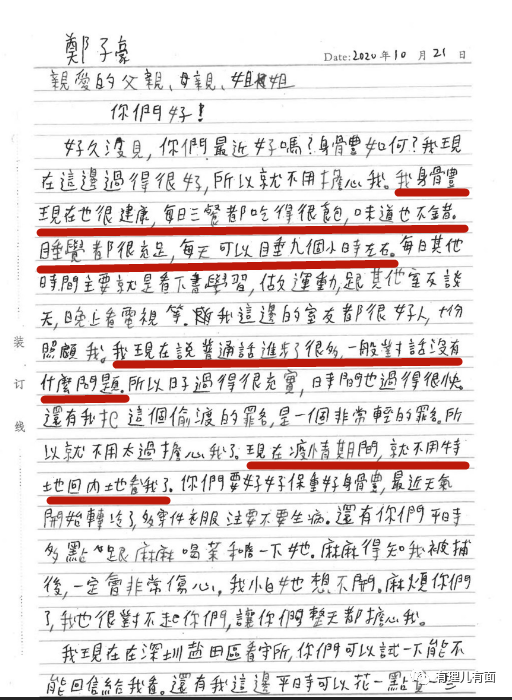 鄭子豪
Date: 2020 年 10 月 21 日
親愛的父親、母親、姐姐
你們好！
好久沒見，你們最近好嗎？身骨豊如何？我現
在這邊過得很好，所以就不用擔心我。我身骨豊
現在也很健康，每日三餐都吃得很飽，味道也不錯。
睡覺都很充足，每天可以睡九個小時左右。每日其他
時間主要就是看下書學習，做久運動，跟其他室友談
天，晚上看電視等。我這邊的室友都很好人，十份
照顧我。我現在説普通話進步了很多，一般對話沒有
什麼問題。所以日子過得很充實，時間也過得很快。
還有我犯這個偷渡的罪名，是一個非常輕的罪名。所
以就不用太過擔心我了。現在疫情期間，就不用特
地回內地看我了。你們要好好保重好身骨豊，最近天氣
開始轉冷了，多穿件衣服注要不要生病。還有你們平時
多點跟麻麻喝茶和一下她。麻麻得知我被捕
後，一定會非常傷心，我小白她想不開。麻煩你們
了，我也很對不起你們，讓你們整天都擔心我。
我現在在深圳鹽田區看守所，你們可以試一下能不
能回信給我看。還有我這邊平日時可以花一點
裝
訂
線
有理儿有面